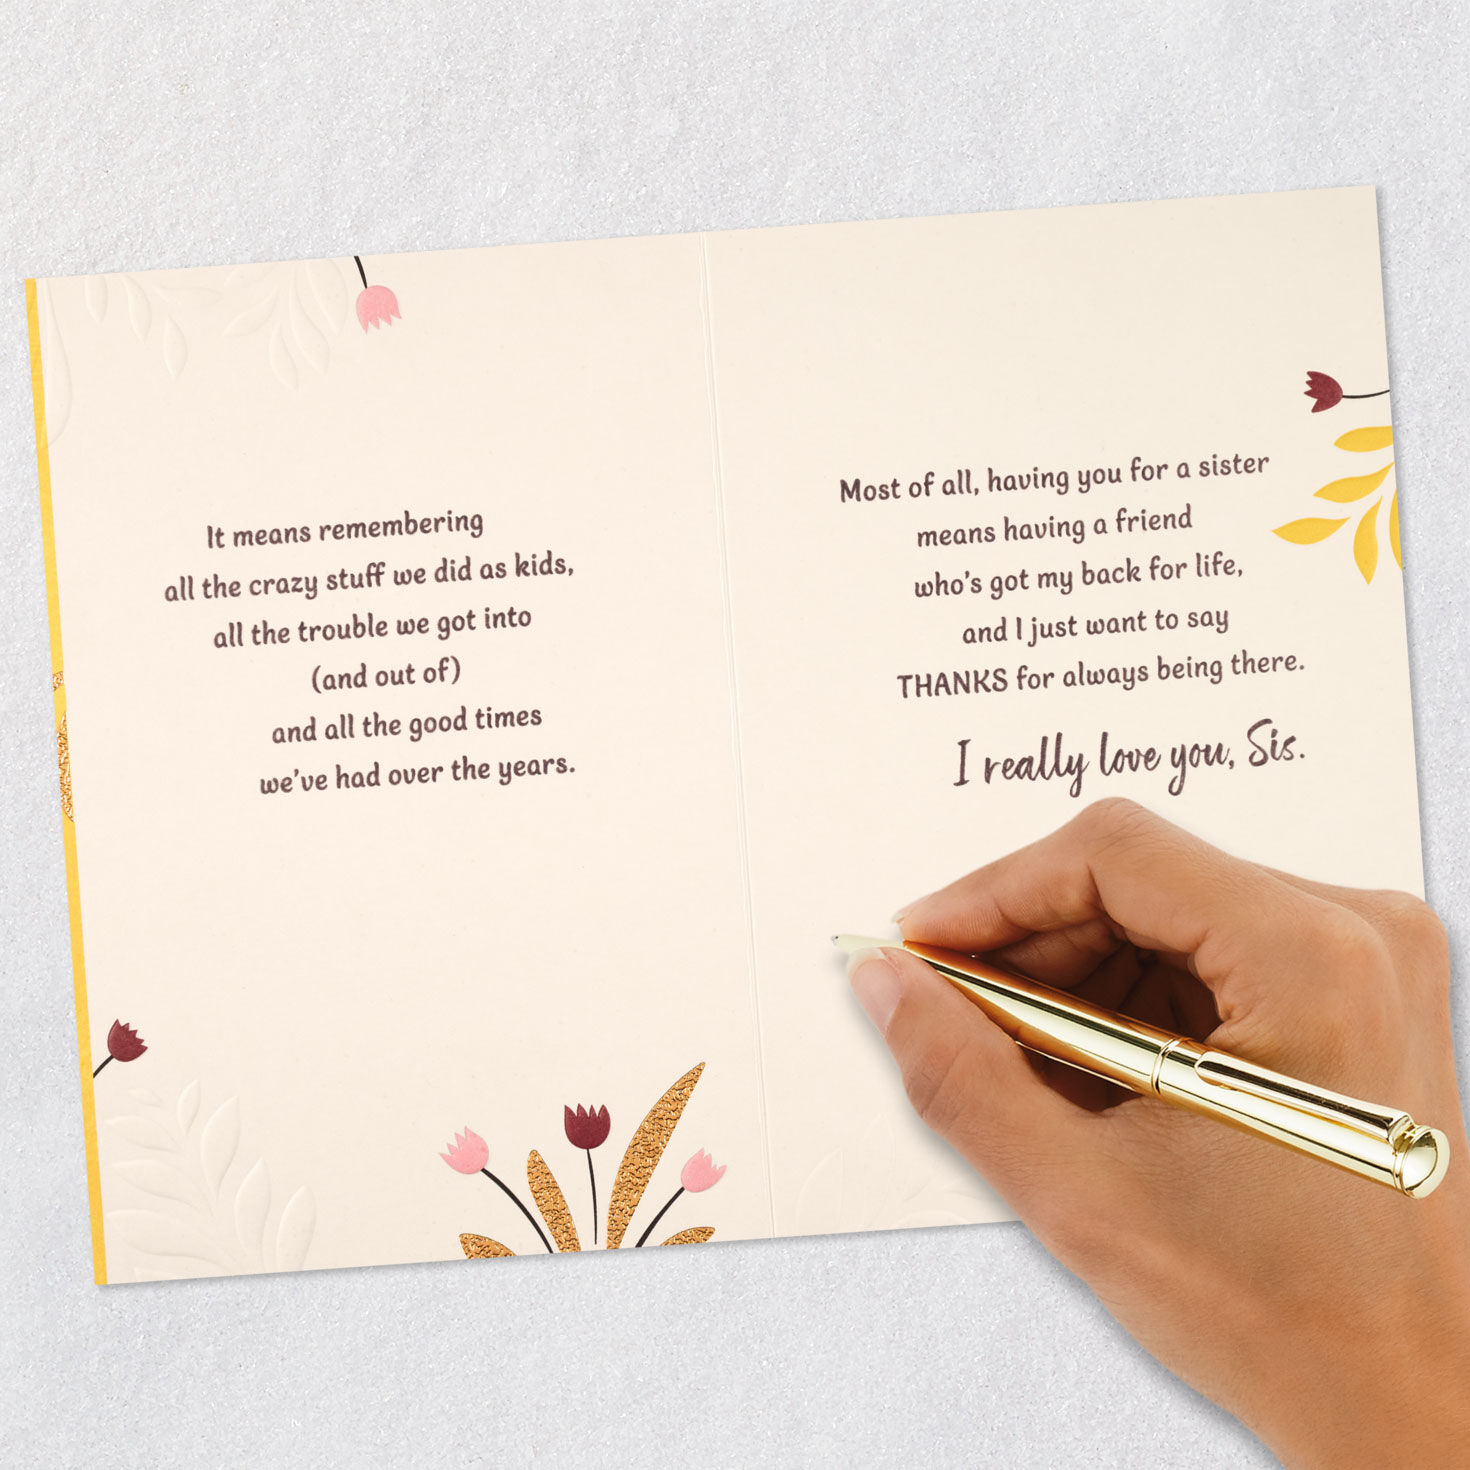 It means remembering
all the crazy stuff we did as kids,
all the trouble we got into
(and out of)
and all the good times
we've had over the years.
Most of all, having you for a sister
means having a friend
who's got my back for life,
and I just want to say
THANKS for always being there.
I really love you, Sis.